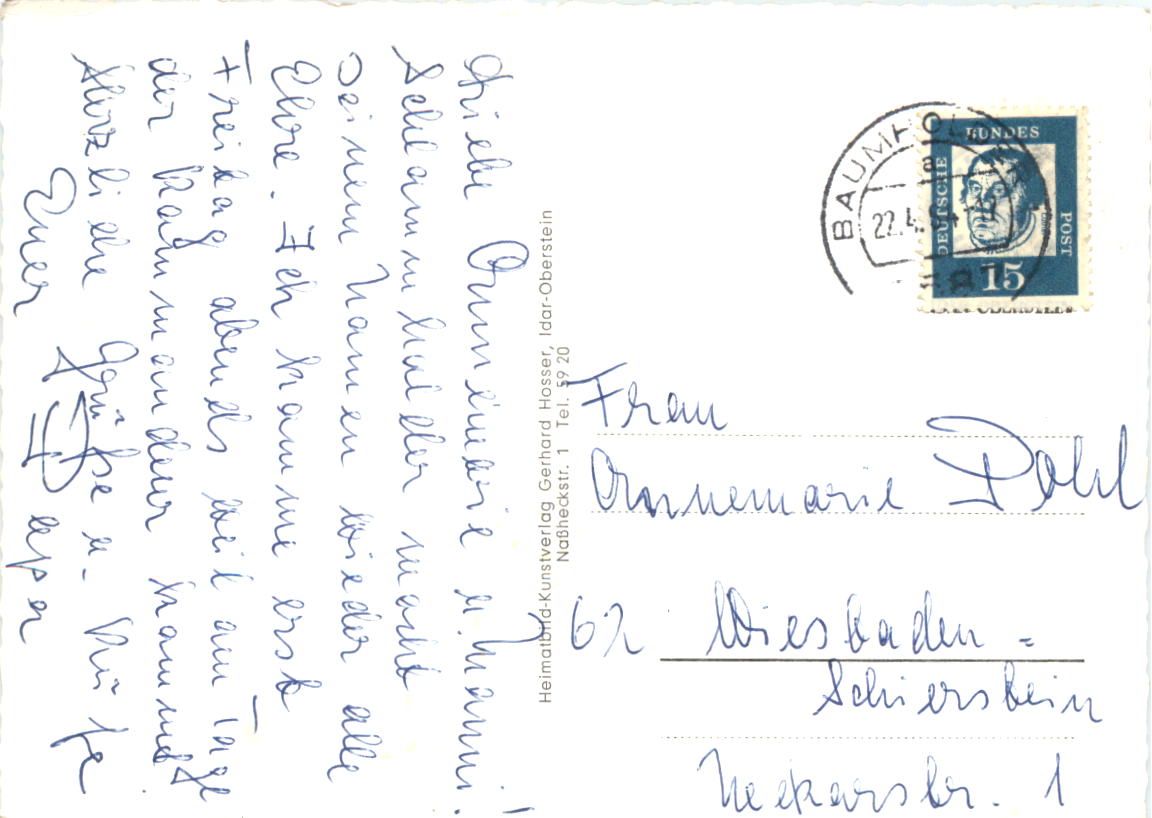 Liebe Annemarie u. Mami!
Schlammhalder macht
seinem Namen wieder alle
Ehre. Ich komme erst
Freitag abends weil am Tage
der Kommandeur kommt
Herzliche Grüße u. Küße
Euer Papa
Heimatbild-Kunstverlag Gerhard Hosser, Idar-Oberstein
Naßheckstr. 1 Tel. 59 20
BAUMHOLDER
a
22.4.64
DEUTSCHE
BUNDES
POST
15
Frau
Annemarie Pohl
62 Wiesbaden -
Schierstein
Neckarstr. 1